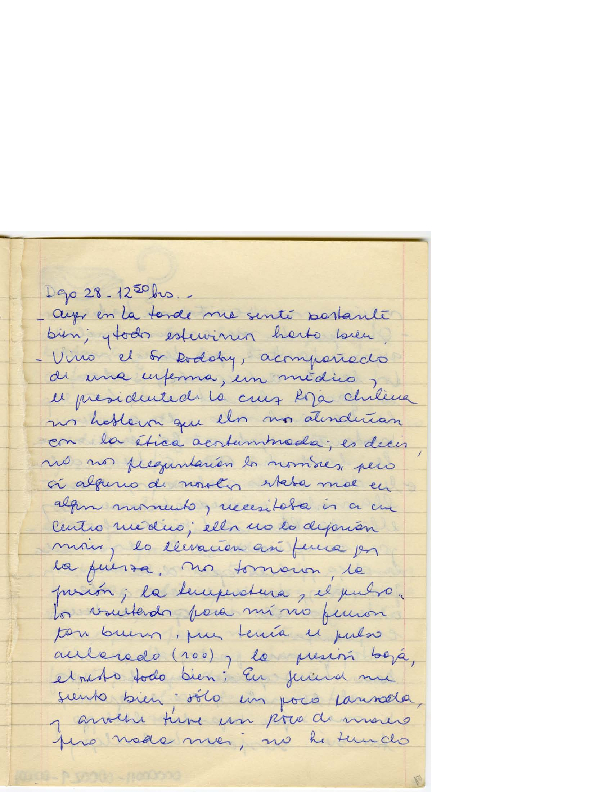 Dgo 28 - 12 50 hrs. -
- Ayer en la tarde me sentí bastante
bien; y todos estuvimos harto bien.
- Vino el Sr acompañado
de una enferma, un médico y
el presidente de la Cruz Roja chilena
nos hablaron que ellos nos atenderían
con la ética acostumbrada; es decir,
no nos preguntarían los nombres, pero
si alguno de nosotros estaba mal en
algún momento, y necesitaba ir a un
centro médico; ellos no lo dejarían
morir, lo llevarían así fuera por
la fuerza. Nos tomaron, la
presión, la temperatura, el pulso.
Los resultados para mí no fueron
tan buenos. pues tenía el pulso
acelarado (100) y la presión baja,
el resto todo bien: En general me
siento bien; sólo un poco cansada,
y anoche tuve un poco de mareo
pero nada mas; no he tenido